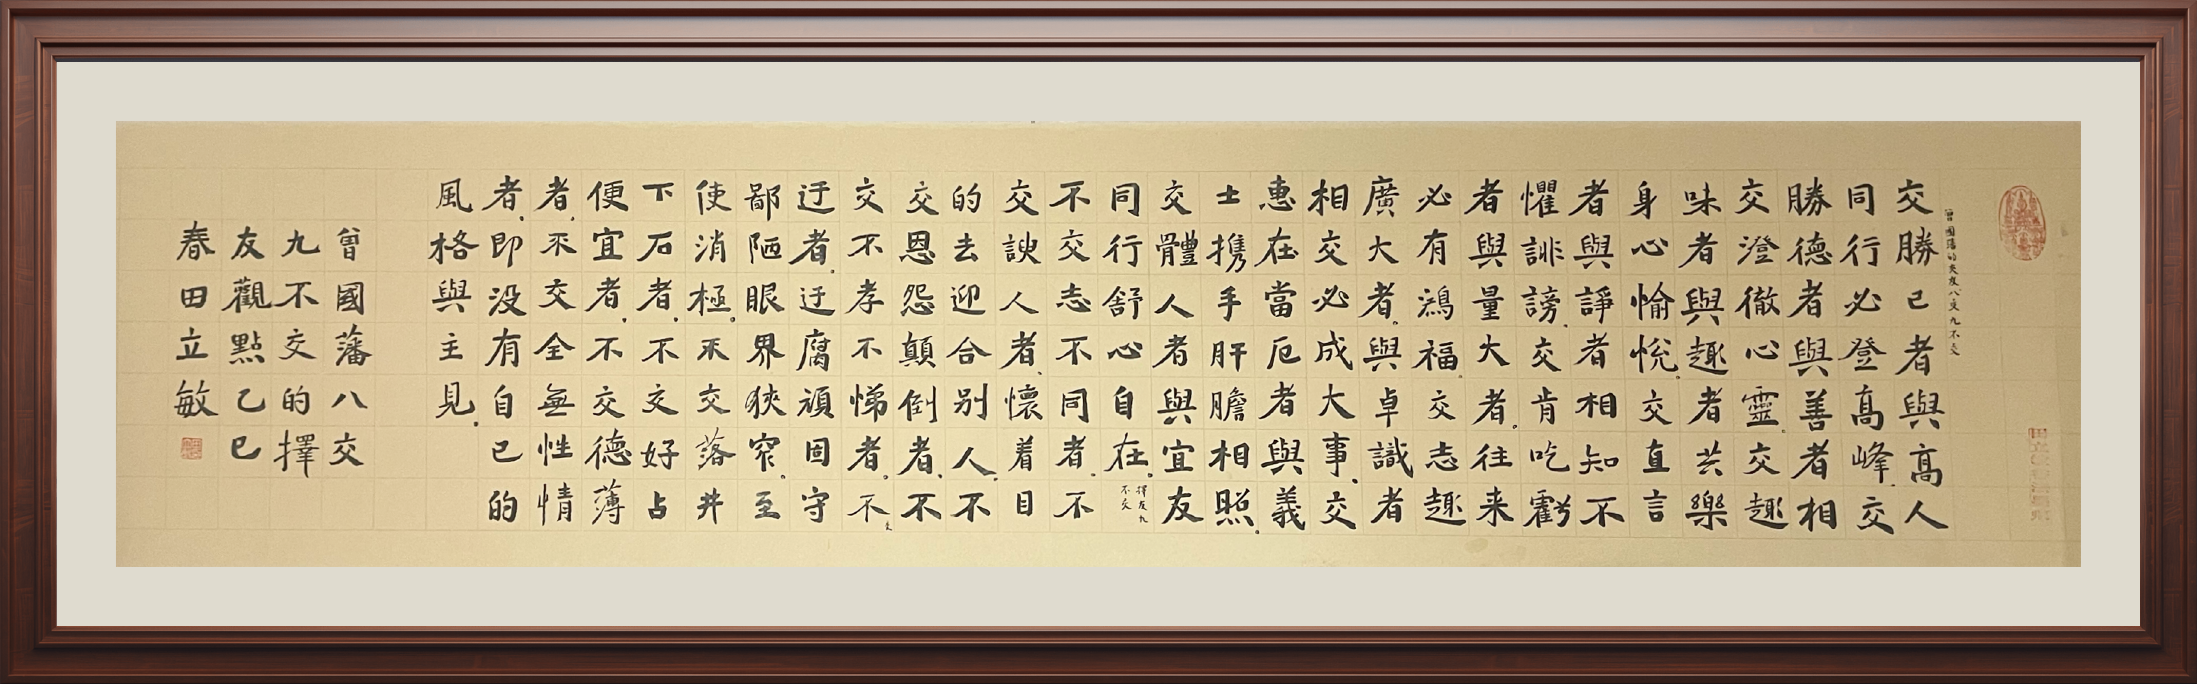 曾國藩的交友八交九不交
交勝己者與高人
同行必登高峰、交
勝德者與善者相
交澄徹心靈。交趣
味者與趣者共樂
身心愉悅。交直言
者與諍者相知不
懼誹謗、交肯吃虧
者與量大者、往来
必有鴻福。交志趣
廣大者。與卓識者
相交必成大事、交
惠在當厄者與義
士携手肝膽相照。
交體人者與宜友
同行舒心自在。
擇友九
不交
不交志不同者、不
交諛人者、懷着目
的去迎合别人、不
交恩怨顛倒者、不
交不孝不悌者。不交
迂者、迂腐頑固守
鄙陋眼界狹窄。至
使消極。不交落井
下石者、不交好占
便宜者、不交德薄
者、不交全無性情
者、即没有自己的
風格與主見。
曾國藩八交
九不交的擇
友觀點乙巳
春田立敏